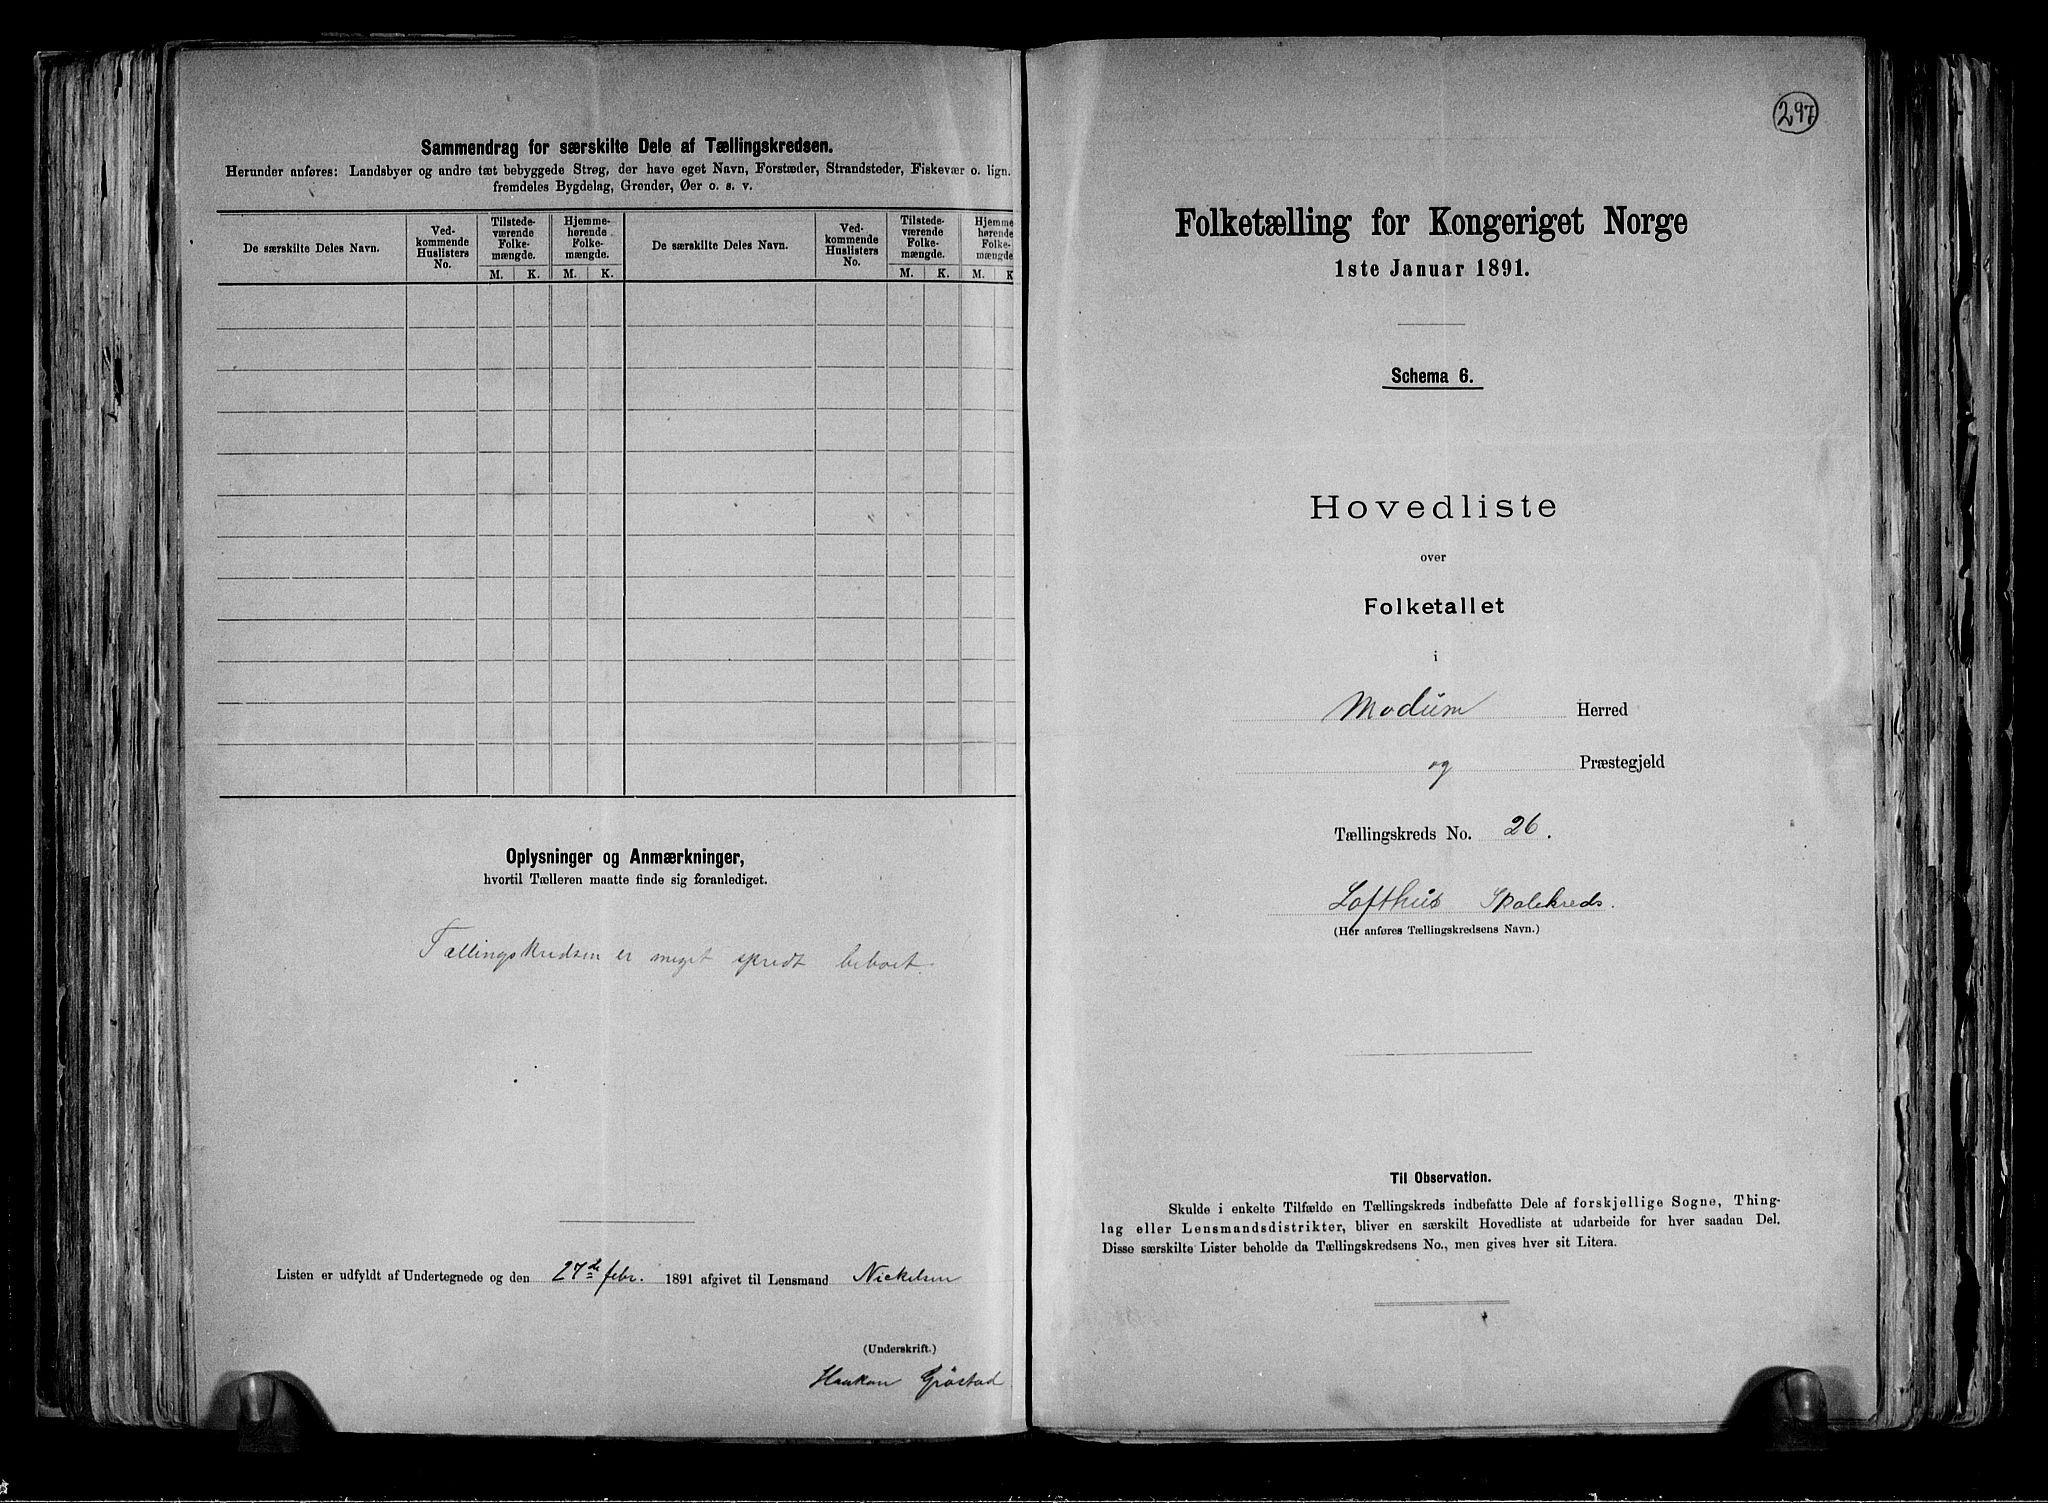 Sammendrag for særskilte Dele af Tællingskredsen.
Herunder anføres: Landsbyer og andre tæt bebyggede Strøg, der have eget Navn, Forstæder, Strandsteder, Fiskevær o. lign.
fremdeles Bygdelag, Grender, Øer o. s. v.
De særskilte Deles Navn.
Ved-
kommende
Huslisters
No.
Tilstede-
værende
Folke-
mængde.
Hjemme-
hørende
Folke-
mængde.
M. K. M. K.
De særskilte Deles Navn.
Ved-
kommende
Huslisters
No.
Tilstede-
værende
Folke-
mængde.
Hjemme
hørende
Folke-
mængde
M. K. M. K
Oplysninger og Anmærkninger,
hvortil Tælleren maatte finde sig foranlediget.
Tællingskredsen er meget spredt beboet.
Listen er udfyldt af Undertegnede og den 27de febr. 1891 afgivet til Lensmand Nickelsen
(Underskrift.)
Haakon Grøstad
297
Folketælling for Kongeriget Norge
1ste Januar 1891.
Schema 6.
Hovedliste
over
Folketallet
i
Modum Herred
og Præstegjeld
Tællingskreds No. 26.
Lofthus Skolekreds.
(Her anføres Tællingskredsens Navn.)
Til Observation.
Skulde i enkelte Tilfælde en Tællingskreds indbefatte Dele af forskjellige Sogne, Thing-
lag eller Lensmandsdistrikter, bliver en særskilt Hovedliste at udarbeide for hver saadan Del.
Disse særskilte Lister beholde da Tællingskredsens No., men gives hver sit Litera.